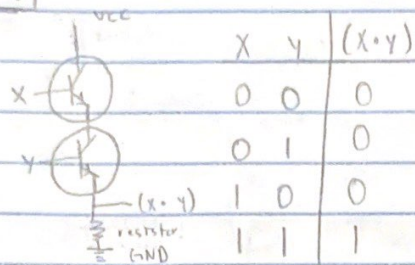 VCC
X
Y
(X·Y)
resistor
GND
X Y (X·Y)
0 0 0
0 1 0
1 0 0
1 1 1